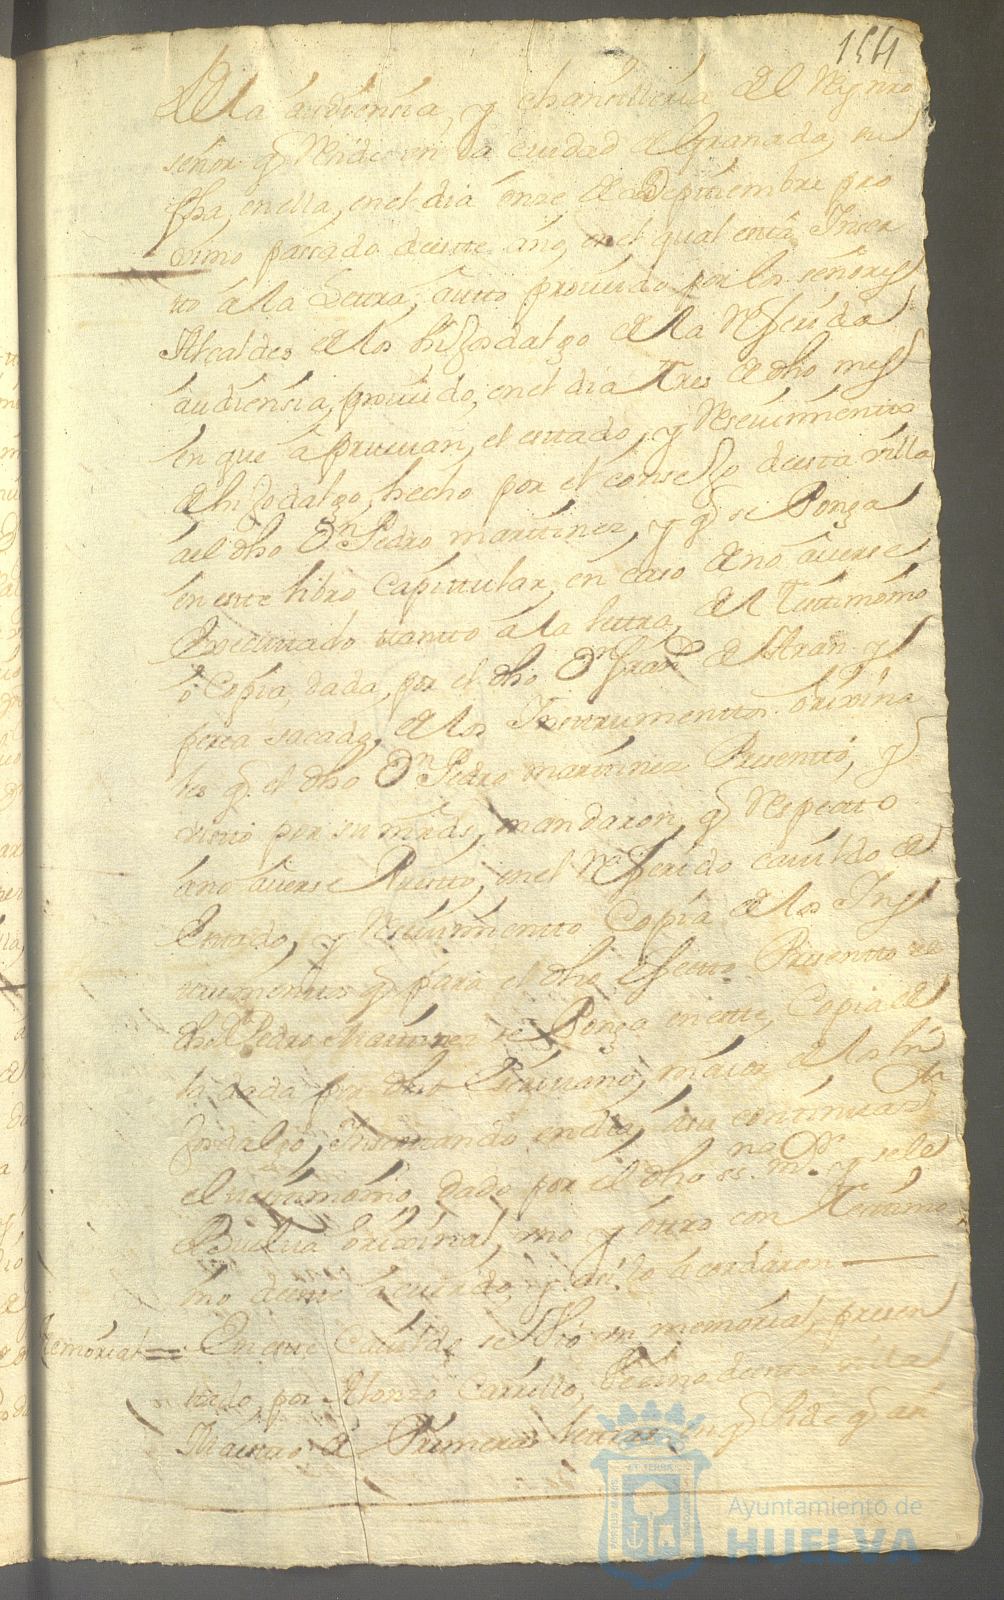 154
de la audiencia, y chansilleria del Rey nro
señor q Reside en la ciudad de Granada, su
fha en ella, en el dia onze de Septiembre pro
ximo passado deeste año, en el qual está Inser
tto á la Lettra, autto proveido por los señores
Alcaldes de los hijosdalgo de la Referida
audiensia, proveido, en el dia tres de dho mes
en que aprueuan, el esttado, y Reseuimientto
de hijodalgo, hecho por el consejo deesta villa
ael dho Dn Pedro marttinez, y q se Ponga
en este libro Capittular, en caso de no auerse
Executtado ttantto á la lettra, del testtimonio
ó Copia, dada, por el dho Dn Franco de Aran y
perea sacada, de los Instrumenttos orixina
les q el dho Dn Pedro marttinez Presenttó, y
visto por sus mrds, mandaron, q Respectto
ano auerse Puestto, en el Referido cauildo de
Esttado, y Reseuimientto Copia de los Ins
trumenttos q para el dho efectto Presentto el
dho Dn Pedro Marttinez se Ponga en este, Copia de
la dada por dho Escriuano, maior de los hi
josdalgo, Insertando en ella, á su continuasn
el testtimonio, dado por el dho ssno mr y se le
Buelua orixinal, uno y ottro con testtimo
nio deeste acuerdo, y así lo acordaron
Memorial = En este Cauildo se Vió un memorial, presen
tado, por Alonzo Carrillo, Vezino deesta villa
Maestro de Primeras lettras, en q Pide q an
Ayuntamiento de
HUELVA